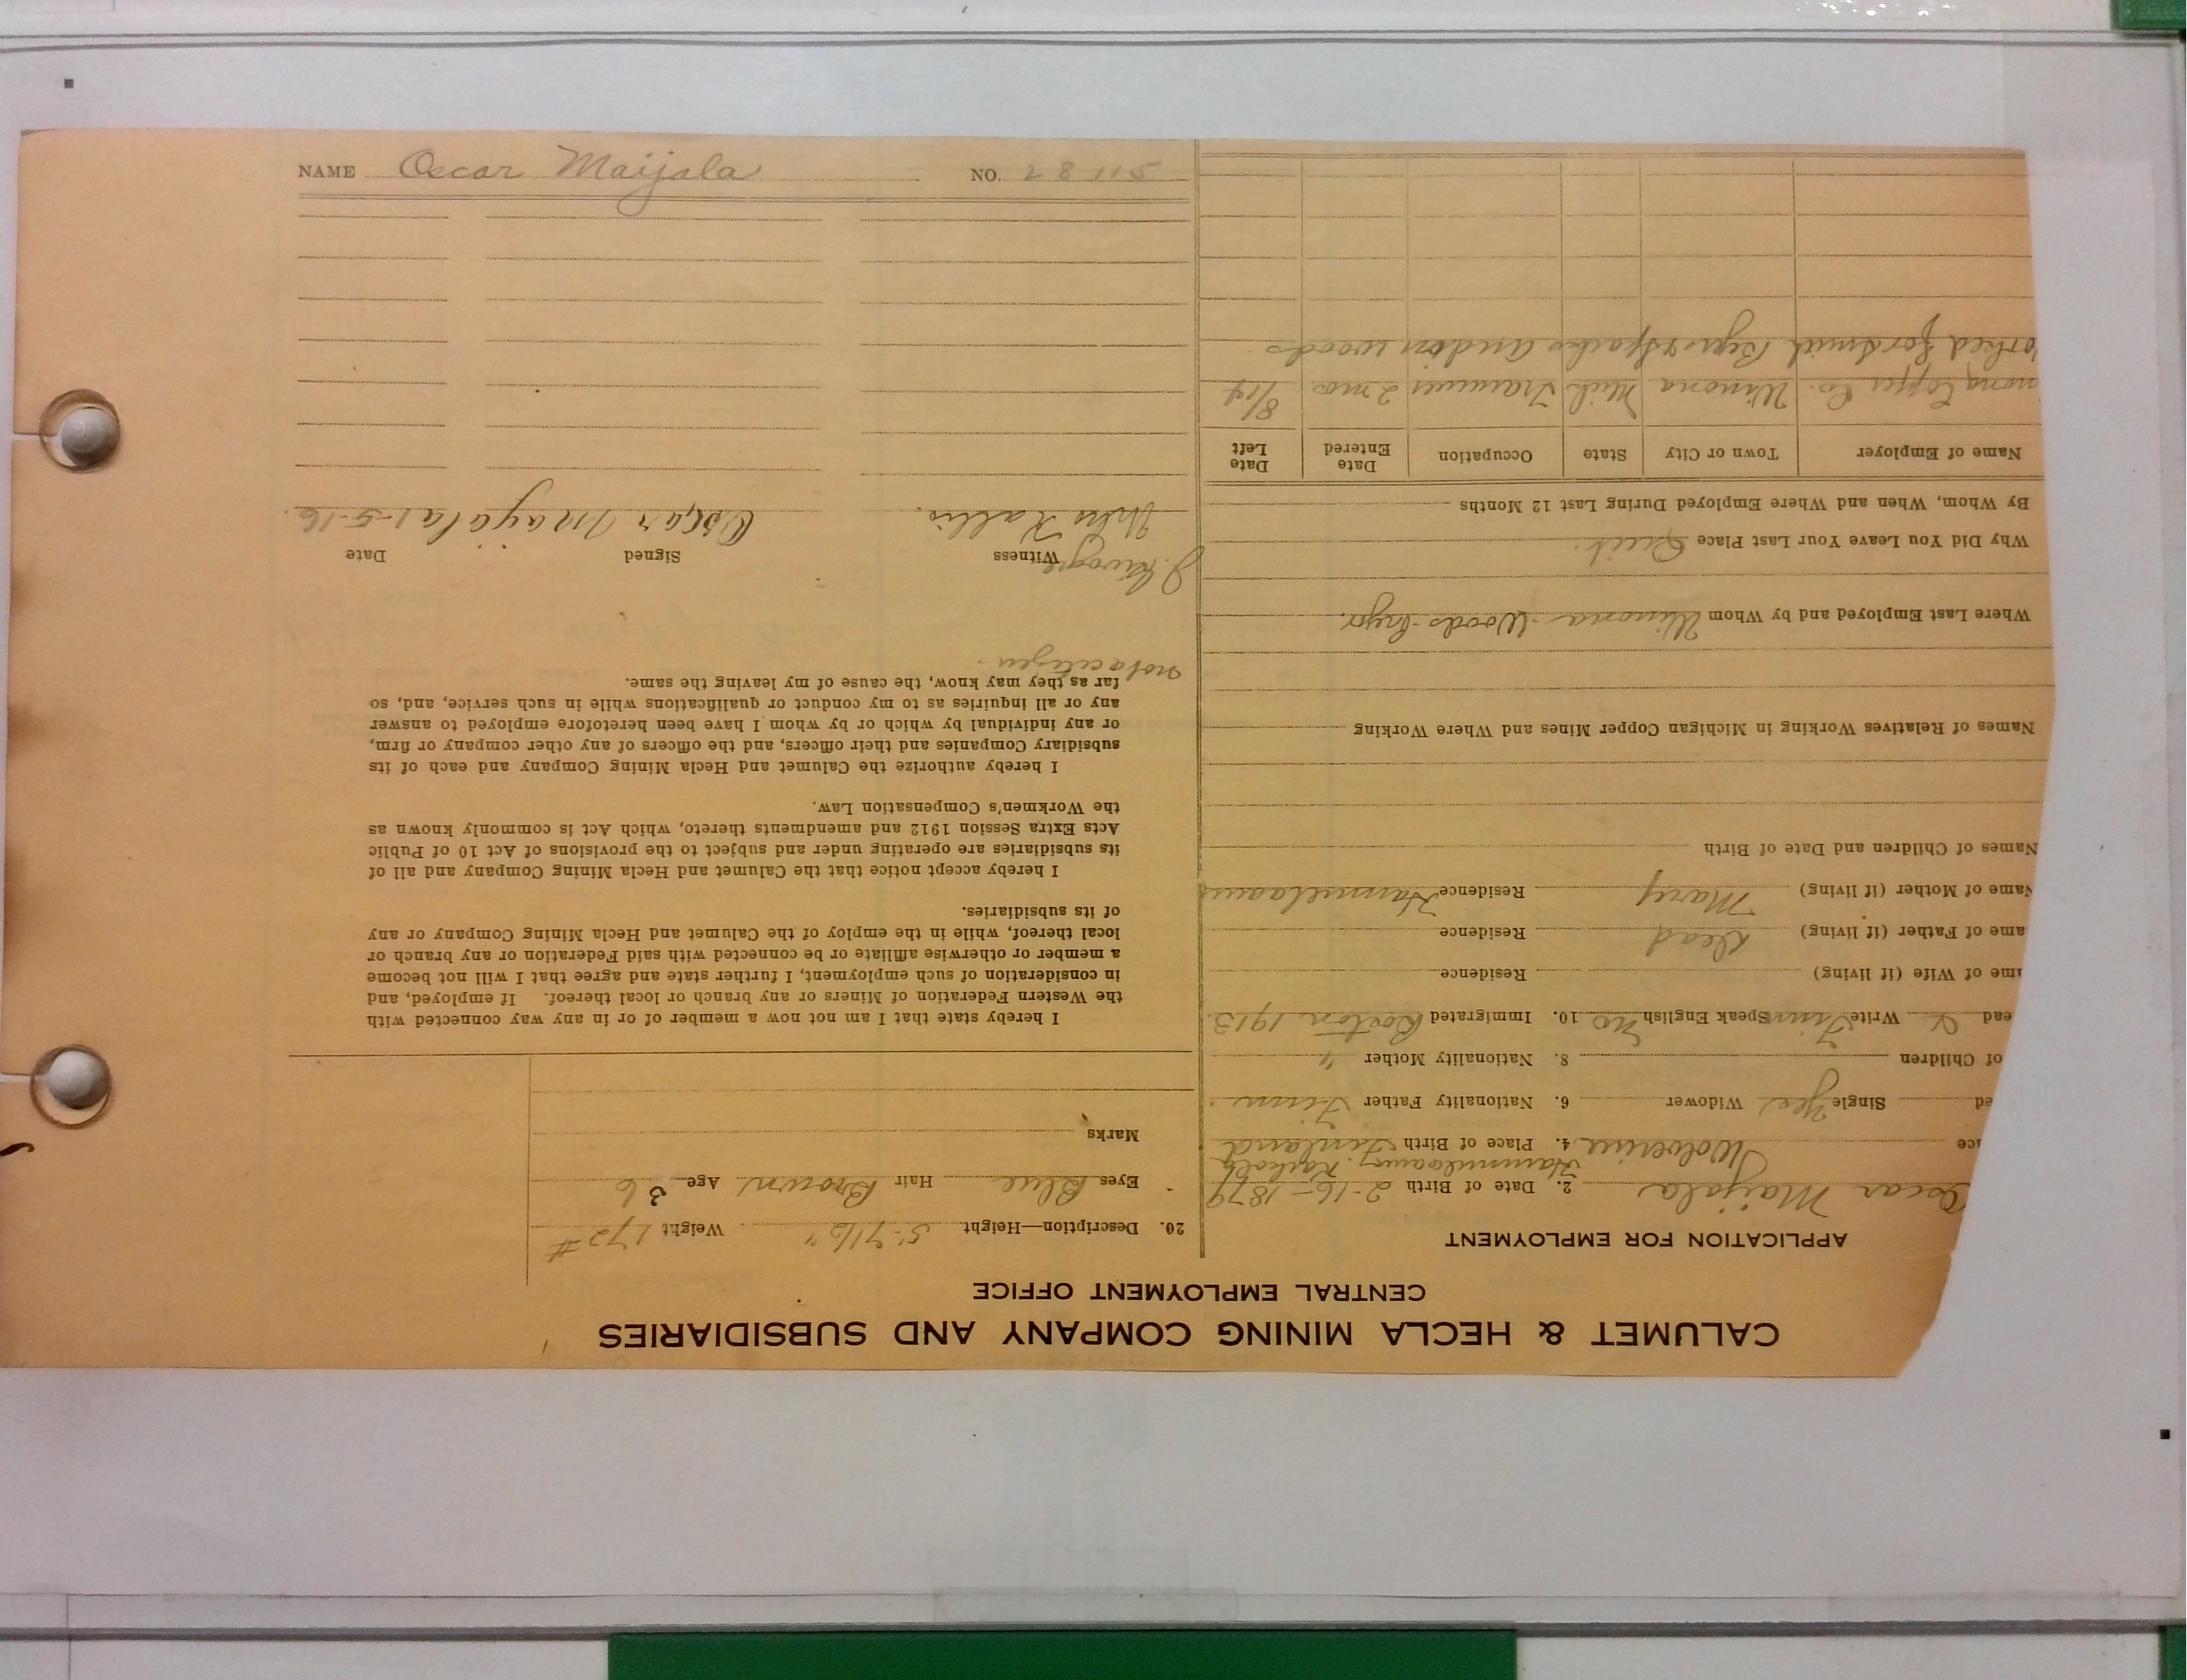 NAME Oscar Maijala NO. 28115
CALUMET & HECLA MINING COMPANY AND SUBSIDIARIES
CENTRAL EMPLOYMENT OFFICE
APPLICATION FOR EMPLOYMENT
Oscar Maijala 2. Date of Birth 2-16-1879
ce Wolverine 4. Place of Birth Finland
ed Single Yes Widower 6. Nationality Father Finn
of Children 8. Nationality Mother "
ead Write Finn Speak English No 10. Immigrated Boston 1913
ame of Wife (if living) Residence
ame of Father (if living) Dead Residence
Name of Mother (if living) Mary Residence
Names of Children and Date of Birth
Names of Relatives Working in Michigan Copper Mines and Where Working
Where Last Employed and by Whom Winona - Woods -
Why Did You Leave Your Last Place Quit.
By Whom, When and Where Employed During Last 12 Months
Name of Employer Town or City State Occupation Date Entered Date Left
nona Copper Co. Winona Mich Trammer 2 mos 8/14
orked for and on woods
20. Description—Height 5' 7 1/2" Weight 172#
Eyes Blue Hair Brown Age 36
Marks
I hereby state that I am not now a member of or in any way connected with
the Western Federation of Miners or any branch or local thereof. If employed, and
in consideration of such employment, I further state and agree that I will not become
a member or otherwise affiliate or be connected with said Federation or any branch or
local thereof, while in the employ of the Calumet and Hecla Mining Company or any
of its subsidiaries.
I hereby accept notice that the Calumet and Hecla Mining Company and all of
its subsidiaries are operating under and subject to the provisions of Act 10 of Public
Acts Extra Session 1912 and amendments thereto, which Act is commonly known as
the Workmen's Compensation Law.
I hereby authorize the Calumet and Hecla Mining Company and each of its
subsidiary Companies and their officers, and the officers of any other company or firm,
or any individual by which or by whom I have been heretofore employed to answer
any or all inquiries as to my conduct or qualifications while in such service, and, so
far as they may know, the cause of my leaving the same.
not a citizen.
Witness Signed Date
Oscar Mayala 1-5-16.